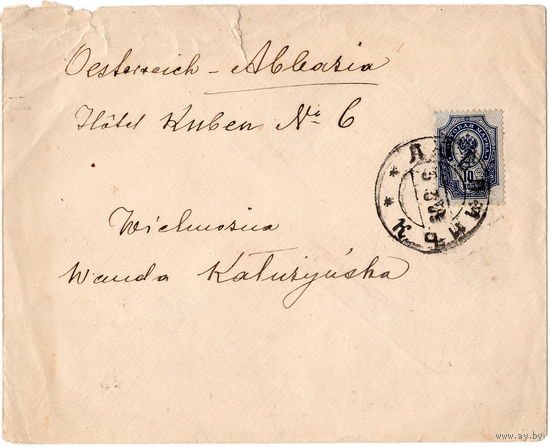 Oesterreich – Abbazia
Hôtel Kuben № 6
10
Wielmożna
Wanda Kałużyńska
www.ay.by